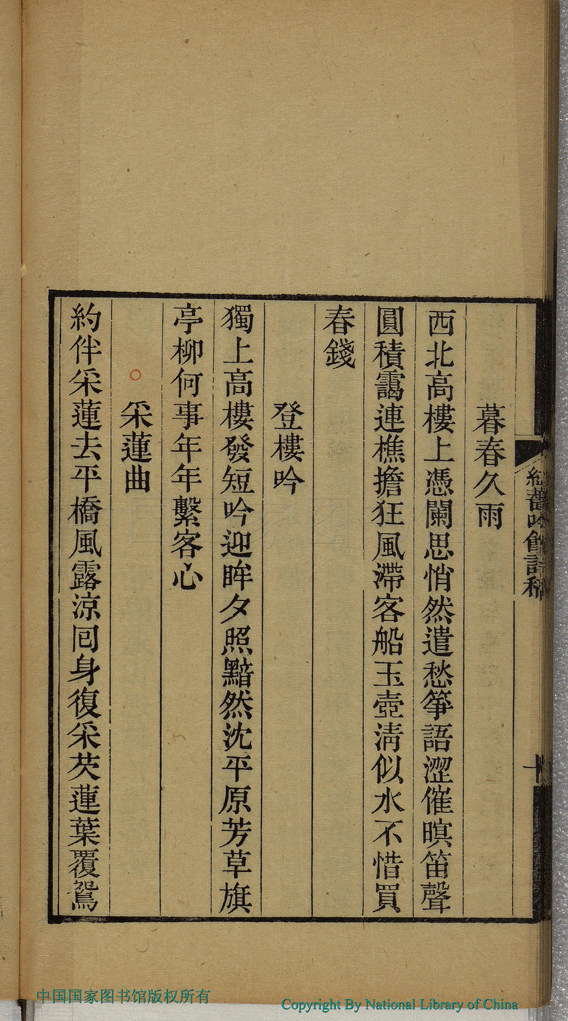 暮春久雨
西北高樓上憑闌思悄然遣愁箏語澀催暝笛聲
圓積靄連樵擔狂風滯客船玉壺淸似水不惜買
春錢
登樓吟
獨上高樓發短吟迎眸夕照黯然沈平原芳草旗
亭柳何事年年繫客心
采蓮曲
約伴采蓮去平橋風露涼囘身復采芡蓮葉覆鴛
吟館詩稿
中国国家图书馆版权所有
Copyright By National Library of China